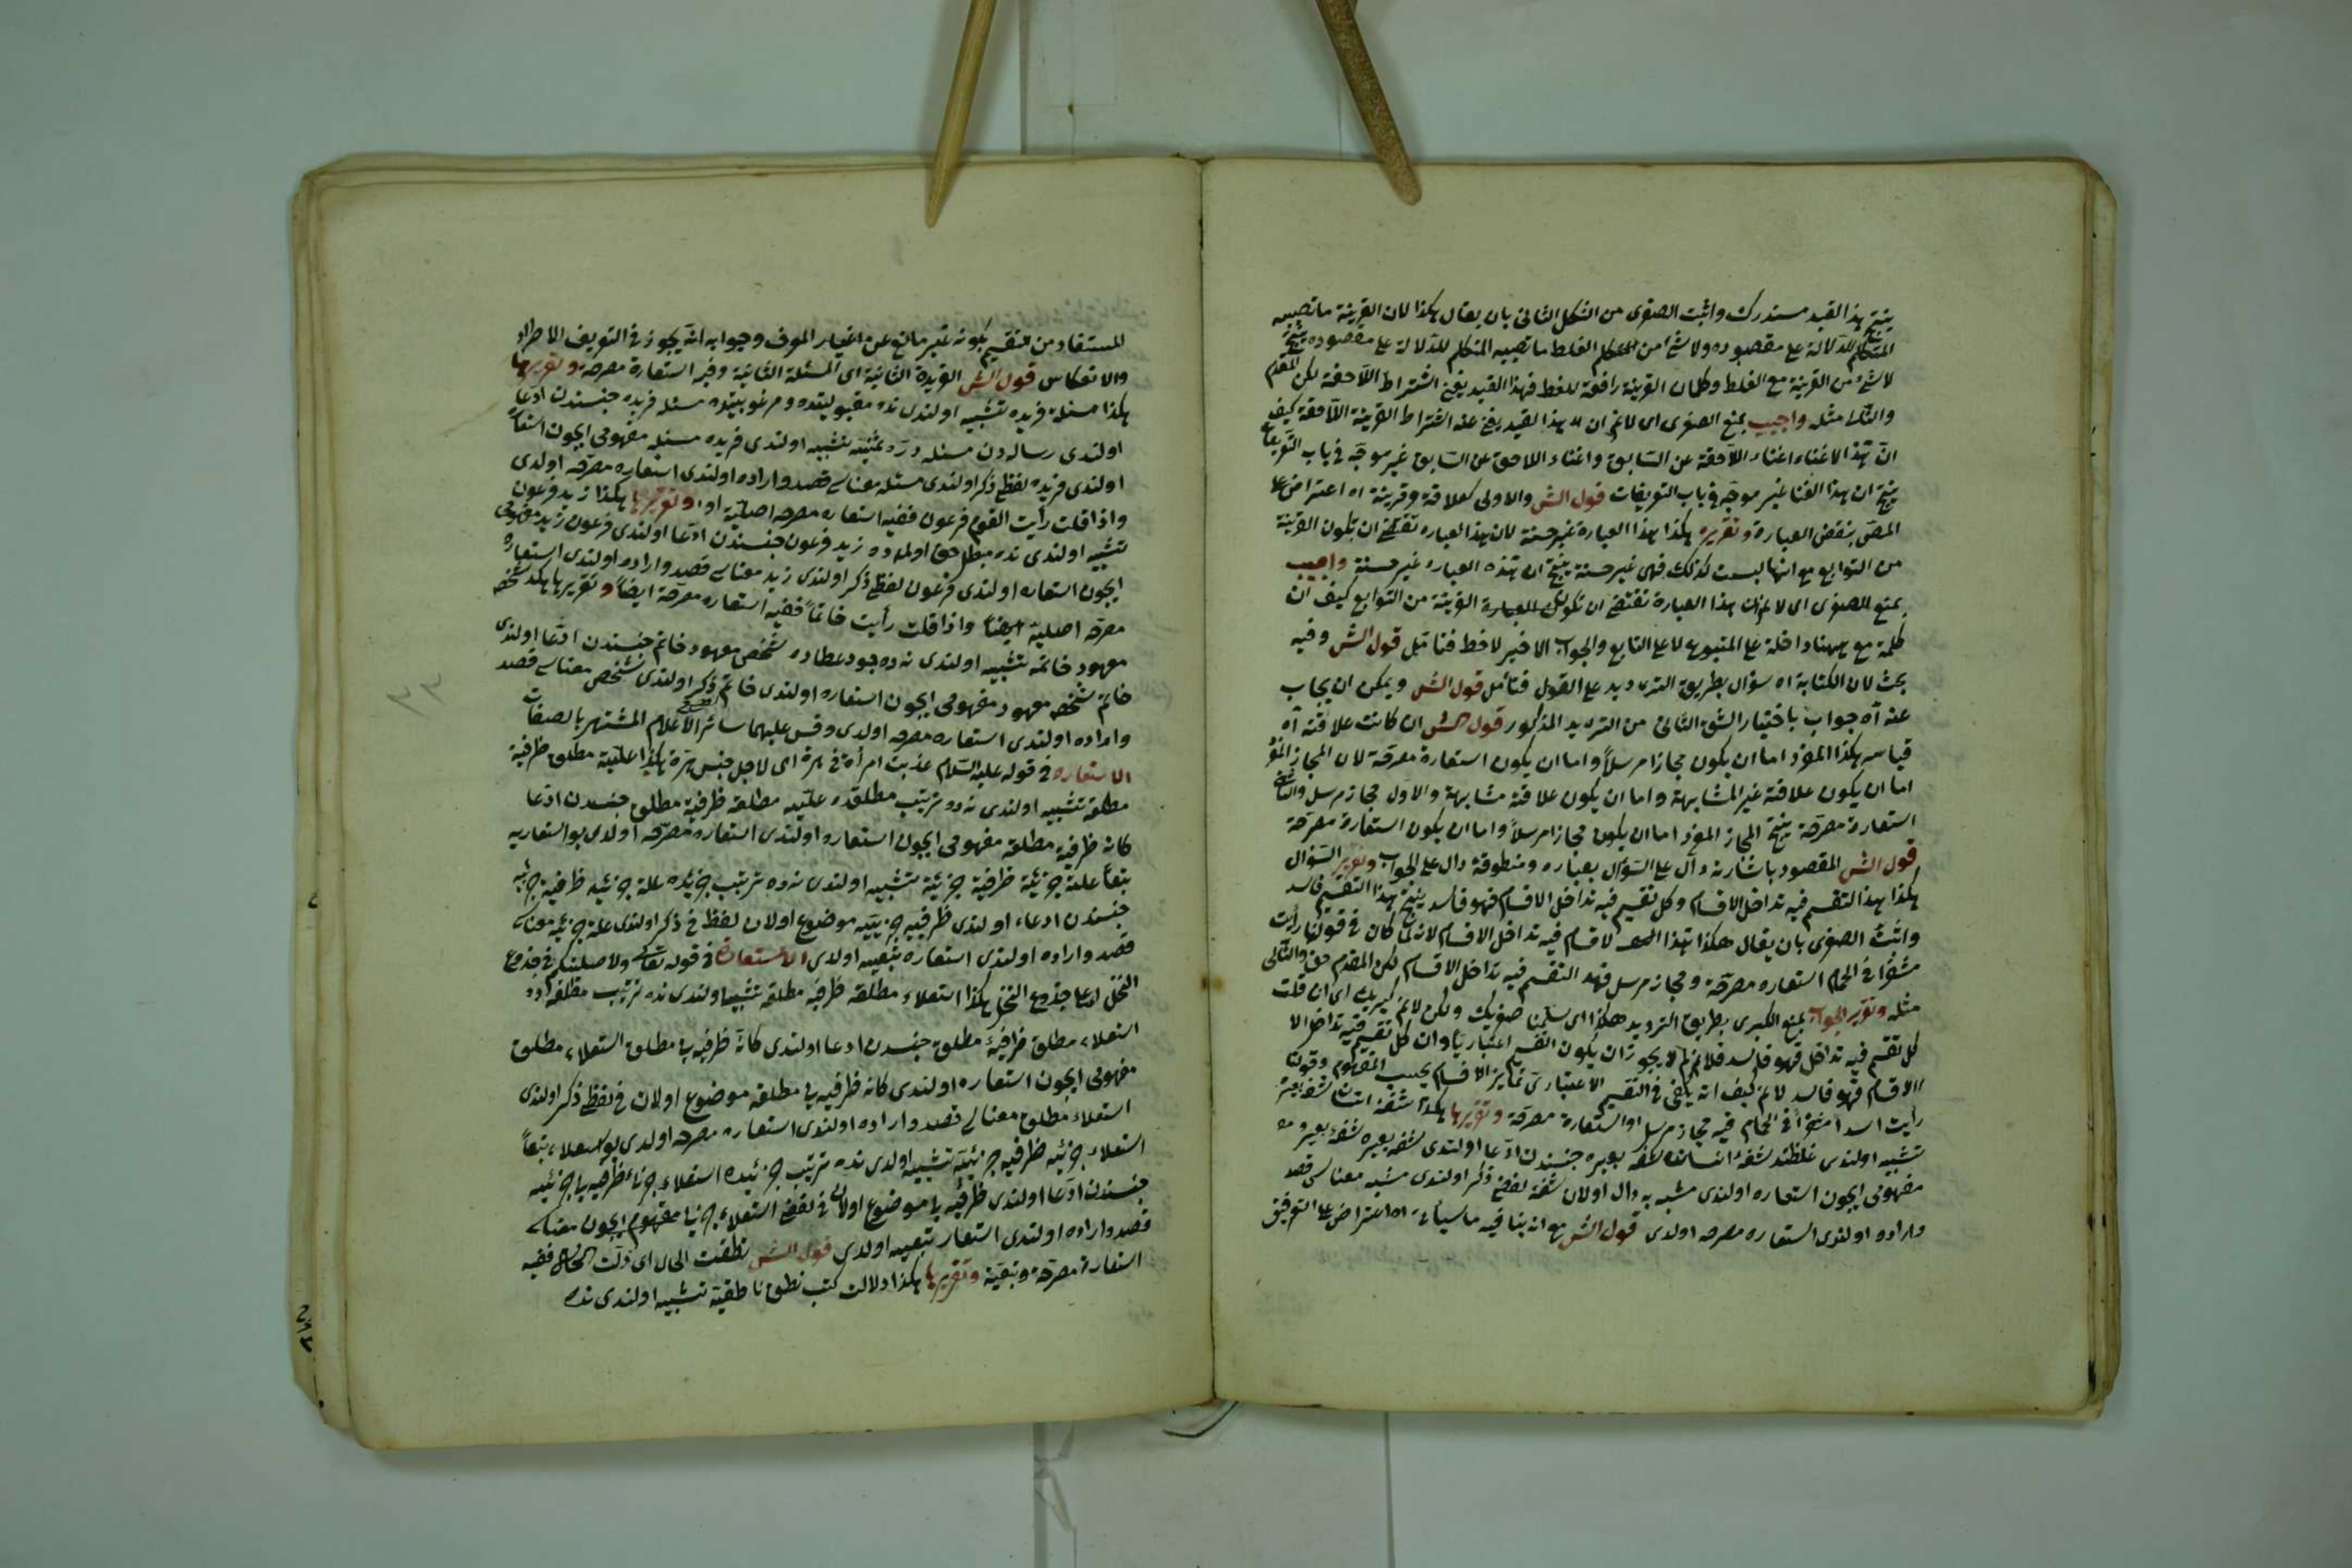 ينتج هذا القيد مستدرك واثبت الصغرى من الشكل الثانى بان يقال هكذا لان القرينة ما نصبه
المتكلم للدلالة على مقصوده ولا شئ من الغلط ما نصبه المتكلم للدلالة على مقصوده ينتج
لا شئ من القرينة مع الغلط وكلما كان القرينة رافعة للغلط فهذا القيد يغنى اشتراط اللاحقة لكن المقدم
والتالى مثله واجيب بمنع الصغرى اى لا نم ان هذا القيد يغنى عنه اشتراط القرينة اللاحقة كيف
ان هذا الاغناء اغناء اللاحقة عن السابق واغناء اللاحق عن السابق غير موجه فى باب التعريفات
ينتج ان هذا الغنا غير موجه فى باب التعريفات قول الش والاولى كعلاقة وقرينة اه اعتراض على
المص بنقض العبارة وتقريره هكذا هذا العبارة غير حسنة لان هذا العباره تقتضى ان يكون القرينة
من التوابع مع انها ليست كذلك فهى غير حسنة ينتج ان هذه العباره غير حسنة واجيب
بمنع الصغرى اى لا نم ان هذا العبارة تقتضى ان تكون القرينة من التوابع كيف ان
كلمة مع ههنا داخلة على المتبوع لا على التابع والجواب الاخير لا فقط فتأمل قول الش وفيه
بحث لان الكناية اه سؤال بطريق الترديد على القول فتأمل قول الش ويمكن ان يجاب
عنه آه جواب باختيار الشق الثانى من الترديد المذكور قول الش ان كانت علاقته آه
قياسه هكذا المفرد اما ان يكون مجازا مرسلاً واما ان يكون استعارة مصرحة لان المجاز المفرد
اما ان يكون علاقته غير المشابهة واما ان يكون علاقته مشابهة والاول مجاز مرسل والثانى
استعارة مصرحة ينتج المجاز المفرد اما ان يكون مجازا مرسلاً واما ان يكون استعارة مصرحة
قول الش المقصود باشارته دال على السؤال بعباره ومنطوقه دال على الجواب وتقرير السؤال
هكذا هذا التقسيم فيه تداخل الاقسام وكل تقسيم فيه تداخل الاقسام فهو فاسد ينتج هذا التقسيم فاسد
واثبت الصغرى بان يقال هكذا هذا لاقسام فيه تداخل الاقسام لانه لما كان فى قولنا رأيت
مشفرا فى الحمام استعاره مصرحة ومجاز مرسل فهذ التقسيم فيه تداخل الاقسام لكن المقدم حق والتالى
مثله وتقرير الجواب بمنع الكبرى بطريق الترديد هكذا اى سلمنا صغريك ولكن لا نم كبريك اى ان قلت
كل تقسيم فيه تداخل فهو فاسد فلا نم لم لا يجوز ان يكون التقسيم اعتباريا وان كل تقسيم فيه تداخل الا
الاقسام فهو فاسد لا نم كيف انه يكفى فى التقسيم الاعتبارى تمايز الاقسام بحسب المفهوم وقولنا
رأيت اسدا مشفرا فى الحمام فيه مجاز مرسل او استعارة مصرحة وتقريرها هكذا شفة انسان شفه بعيره
تشبيه اولندى غلظتده شفۀ انسان شفه بعيره جنسندن ادعا اولندى شفه بعيره شفۀ بعيره
مفهومى ايچون استعاره اولندى مشبه به دال اولان شفة لفظى ذكر اولندى مشبه معناسى قصد
واراده اولندى استعاره مصرحه اولدى قول الش مع انه ينافيه ما سيأتى اه اعتراض على التوفيق
المستفاد من تقسيم بكونه غير مانع عن اغيار المعرف وجوابه انه يجوز فى التعريف الاطراد
والانعكاس قول الش الفريدة الثانية اى المسئلة الثانية وفيه استعارة مصرحة وتقريرها
هكذا مسئلة فريده تشبيه اولندى نده مقبوليتده ومرغوبيتده مسئله فريده جنسندن ادعاً
اولندى رسالەدن مسئله درّە ثمينه تشبيه اولندى فريده مسئله مفهومى ايچون استعا
اولندى فريده لفظى ذكر اولندى مسئله معناسى قصد واراده اولندى استعاره مصرحه اولدى
واذا قلت رأيت القوم فرعون ففيه استعاره مصرحه اصليّة اه وتقريرها هكذا زيد فرعون
تشبيه اولندى نده مبطل حق اولمەده زيد فرعون جنسندن ادعا اولندى فرعون زيد مفهومى
ايچون استعاره اولندى فرعون لفظى ذكر اولندى زيد معناسى قصد واراده اولندى استعاره
مصرحه اصلية ايضاً واذا قلت رأيت خاتماً ففيه استعاره مصرحة ايضاً وتقريرها هكذا شخص
معهود خاتمه تشبيه اولندى نده وجود عطاده شخص معهود خاتم جنسندن ادعا اولندى
خاتم شخص معهود مفهومى ايچون استعاره اولندى خاتم ذكر اولندى شخص معناسى قصد
واراده اولندى استعاره مصرحه اولدى وقس عليهما سائر الاعلام المشتهر بالصفات
الاستعاره فى قوله عليه السلام عذبت امرأة فى هرة اى لاجل حبس هرة هكذا عليّة مطلق ظرفية
مطلقه تشبيه اولندى نده ترتيب مطلقده عليّه مطلقه ظرفية مطلق جنسدن ادعا
كانه ظرفية مطلقه مفهومى ايچون استعاره اولندى استعاره مصرحه اولدى بو استعاريه
تبعاً علة جزئية ظرفية جزئية تشبيه اولندى نده ترتيب جزئيده علة جزئيه ظرفية جزئيه
جنسندن ادعاء اولندى ظرفيه جزئيّه موضوع اولان لفظ فى ذكر اولندى علة جزئيه معناسى
قصد واراده اولندى استعاره تبعيه اولدى الاستعارة فى قوله تعالى ولاصلبنكم فى جذوع
النخل اى على جذوع النخل هكذا استعلاء مطلقه ظرفيه مطلقه تشبيه اولندى نده ترتيب مطلقەده
استعلاء مطلق ظرفية مطلق جنسدن ادعا اولندى كانه ظرفيه يى مطلق استعلاء مطلق
مفهومى ايچون استعاره اولندى كانه ظرفيه يى مطلقه موضوع اولان فى لفظى ذكر اولندى
استعلاء مطلق معناسى قصد واراده اولندى استعاره مصرحه اولدى بو استعلاء تبعاً
استعلاء جزئيه ظرفيه جزئيّه تشبيه اولدى نده ترتيب جزئيده استعلاء جزئ ظرفيه يا جزئيه
جنسدن ادعا اولندى ظرفيه يا موضوع اولان فى لفظى استعلاء جزئيا مفهوم ايچون معناسى
قصد واراده اولندى استعار تبعيه اولدى قول الش نطقت الحال اى دلت الحال ففيه
استعارة مصرحة وتبعية وتقريرها هكذا دلالت كتب نطق ناطقية تشبيه اولندى نده